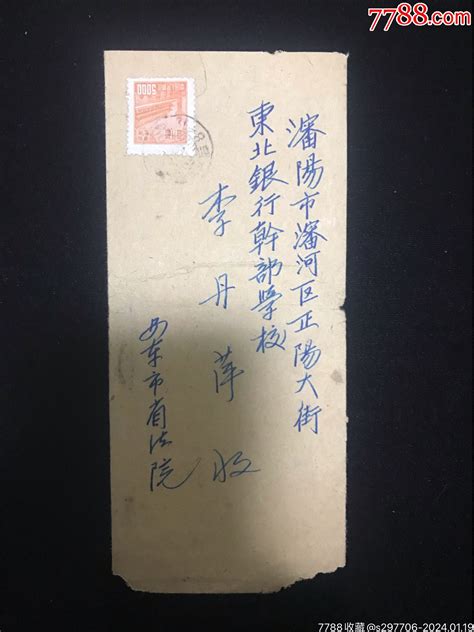 7788.com
瀋陽市瀋河区正陽大街
東北銀行幹部學校
李丹萍 收
安东市省法院
5000
7788收藏@s297706-2024.01.19